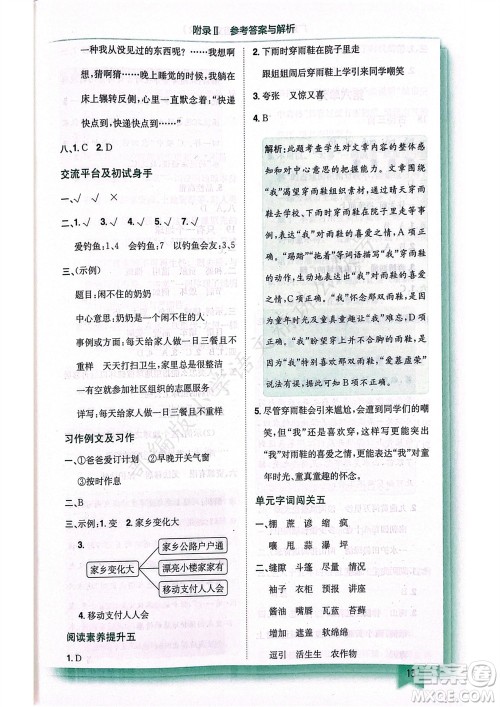 附录Ⅱ 参考答案与解析
一种我从没见过的东西呢？我想啊想
啊，想啊想……晚上睡觉的时候，我在床
上辗转反侧，心心念念的都是，“快递
快点到，快快点到，快递快点到……”
八、1. C 2. D
交流平台及初试身手
一、√ √ ×
二、1. √ 3. √ 4. √ 5. √ 6. √ 7. √
爱钓鱼：1、4 会钓鱼：6、7 以钓鱼会友：3、5
三、（示例）
题目：闲不住的奶奶
中心意思：奶奶勤劳能干，每天闲不住
事例：每天给大家做一日三餐从不重
样 天天打扫卫生，家里总是很清洁
一有空就参加社区组织的志愿服务
详写：每天给大家做一日三餐从不重样
习作例文及习作
一、①爸爸爱订计划 ②早晚开关窗
③按时作息
二、
三、示例：1. 变 2. 家乡变化大
3.
家乡变化大
家乡公路户户通
漂亮小楼家家有
移动支付人人会
4. 移动支付人人会
阅读素养提升五
1. D
2. 下雨时穿雨鞋在院子里走
跟姐姐闹穿雨鞋上学引来同学嘲笑
3. 夸张 又惊又喜
4. B
解析：此题考查学生对文章内容的整体感
知和对中心意思的把握能力。文章围
绕“我”渴望穿雨鞋组织素材，通过晴天穿
雨鞋去学校、下雨时穿雨鞋在院子里走等
事例，表达“我”对雨鞋的喜爱之情，A项正
确。“踢踏”“拖着”等词语描写“我”穿雨
鞋的动作，生动地表达了“我”对雨鞋的喜
爱之情，C项正确。“我”怀念那双雨鞋，更
是怀念童年，童真童趣才最为难忘，D项正
确。“我”盼望穿上并不合脚的雨鞋，只是
因为“我”特别喜欢那双雨鞋，“爱慕虚荣”
说法有误，据此可知B项不正确。
5. 尽管穿雨鞋会引来尴尬，会遭到同学们的嘲
笑，但“我”还是喜欢穿，突出了“我”
对雨鞋的喜爱之情，也表达了“我”对童
年时光、童真童趣的怀念。
单元字词闯关五
一、棚 蔗 谚 缩 疯
嚷 甩 蒜 瀑 坪
二、缝隙 斗篷 尽量 情况
袖子 衣柜 报社 屏幕
酱油 嘴唇 瓦蓝 蓝莓
增加 盗窃 软绵绵
逗引 活生生 农作物